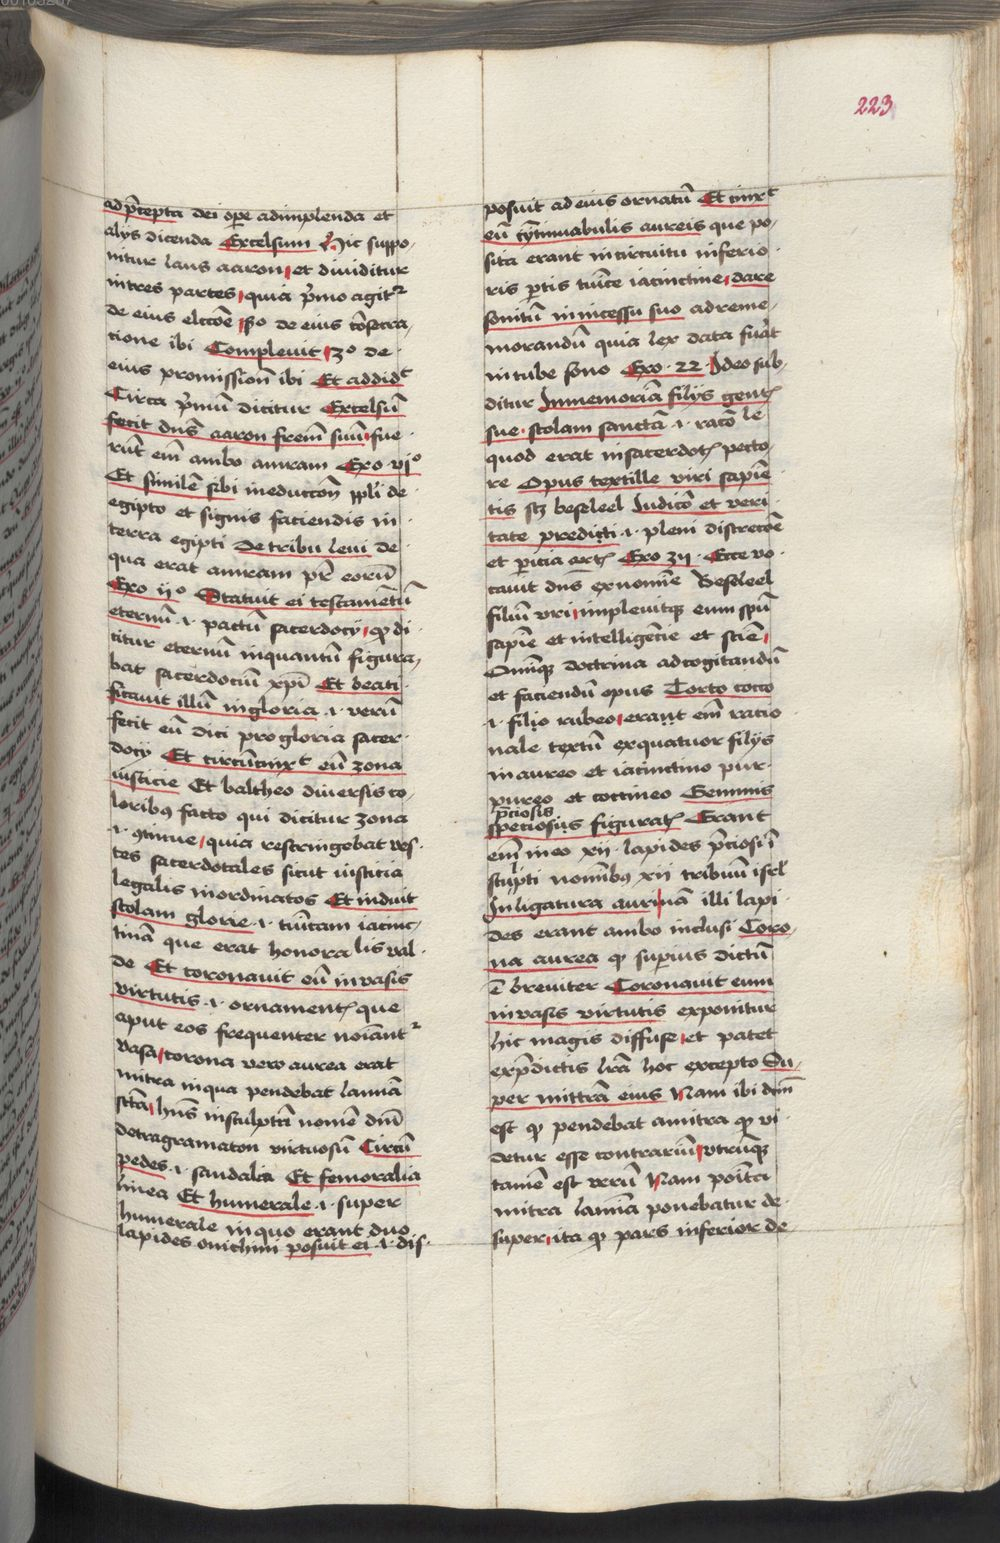 223
ad p̄cepta dei oꝑe adimplenda et
alys dicenda Excelsum Hic suppo-
nitur laus aaron et diuiditur
in tres partes quia p̄mo agit᷑
de eius elcc̄oe 2o de eius cōsecra-
cione ibi Compleuit 3o de
eius promissiōn ibi Et addidt
Circa p̄mū dicitur Excelsū
fecit dn̄s aaron frem̄ suū fue
rūt em̄ ambo amram Exo vjo
Et similē sibi in educcōn ppl̄i de
egipto et signis faciendis in
terra egipti De tribu leui de
qua erat amram pr̄ eorū
Exo ijo Statuit ei testamētū
eternū .i. pactū sacerdocij qd di
citur eternū inquantū figura-
bat sacerdociū xp̄i Et beati
ficauit illū in gloria .i. verū
fecit eū dici pro gloria sacer
docij Et circūcinxt eū zona
iusticie Et baltheo diuersis co-
loribꝰ facto qui dicitur zona
iusticie quia restringebat ves-
tes sacerdotales sicut iusticia
legalis inordinatos Et induit
stolam glorie .i. tunicam iacinc-
tinā que erat honora lis val-
de Et coronauit eū in vasis
virtutis .i. ornamentꝭ que
aput eos frequenter noīant᷑
vasa corona vero aurea erat
mitra in qua pendebat lāmā
sctā hn̄s insculptū nomē dn̄i
detragramaton virtuosū Circū
pedes .i. sandalia Et femoralia
linea Et humerale .i. super
humerale in quo erant duo
lapides onichini posuit ei .i. dis-
posuit ad eius ornatū Et cinxt
eū tȳtinnabulis aureis que po-
sita erant in circuitu inferio
ris ꝑtis tunice iacinctine dare
sonitū in incessu suo ad reme-
morandū quia lex data fuit
in tube sono Exo 22 Ideo sub-
ditur In memoriā filijs gentꝭ
sue stolam sanctā .i. racōle
quod erat in sacerdotꝭ pecto-
re Opus textille viri sapiē
tis scz beseleel Iudicio et veri
tate predicti .i. pleni discrecōe
et ꝑicia artꝭ Exo 31 Ecce vo
cauit dn̄s ex nomīe Beseleel
filiū vri impleuitqꝫ eum spū
sapiē et intelligēcie et sciē
Omīqꝫ doctrina ad cogitandū
et faciendū opus Torto cocco
.i. filo rubeo erant em̄ racio
nale textū ex quatuor filijs
in aureo et iacinctino pur-
pureo et coccineo Gemmis
p̄ciosis
speciosius figuratꝭ Erant
em̄ in eo xij lapides p̄ciosi ī
sculpti nomībꝰ xij tribuum isrl̄
In ligatura auri nā illi lapi
des erant ambo inclusi Coro-
na aurea qd suꝑius dictū
ē breuiter Coronauit eum
in vasis virtutis exponitur
hic magis diffuse et patet
ex p̄dictis lrā hoc excepto Su-
per mittrā eius Nam ibi dcm̄
est qd pendebat a mitra qd vi
detur esse contrariū vtrūqꝫ
tamē est verū Nam poīta
mitra lāmā ponebatur de
super ita qd pars inferior de